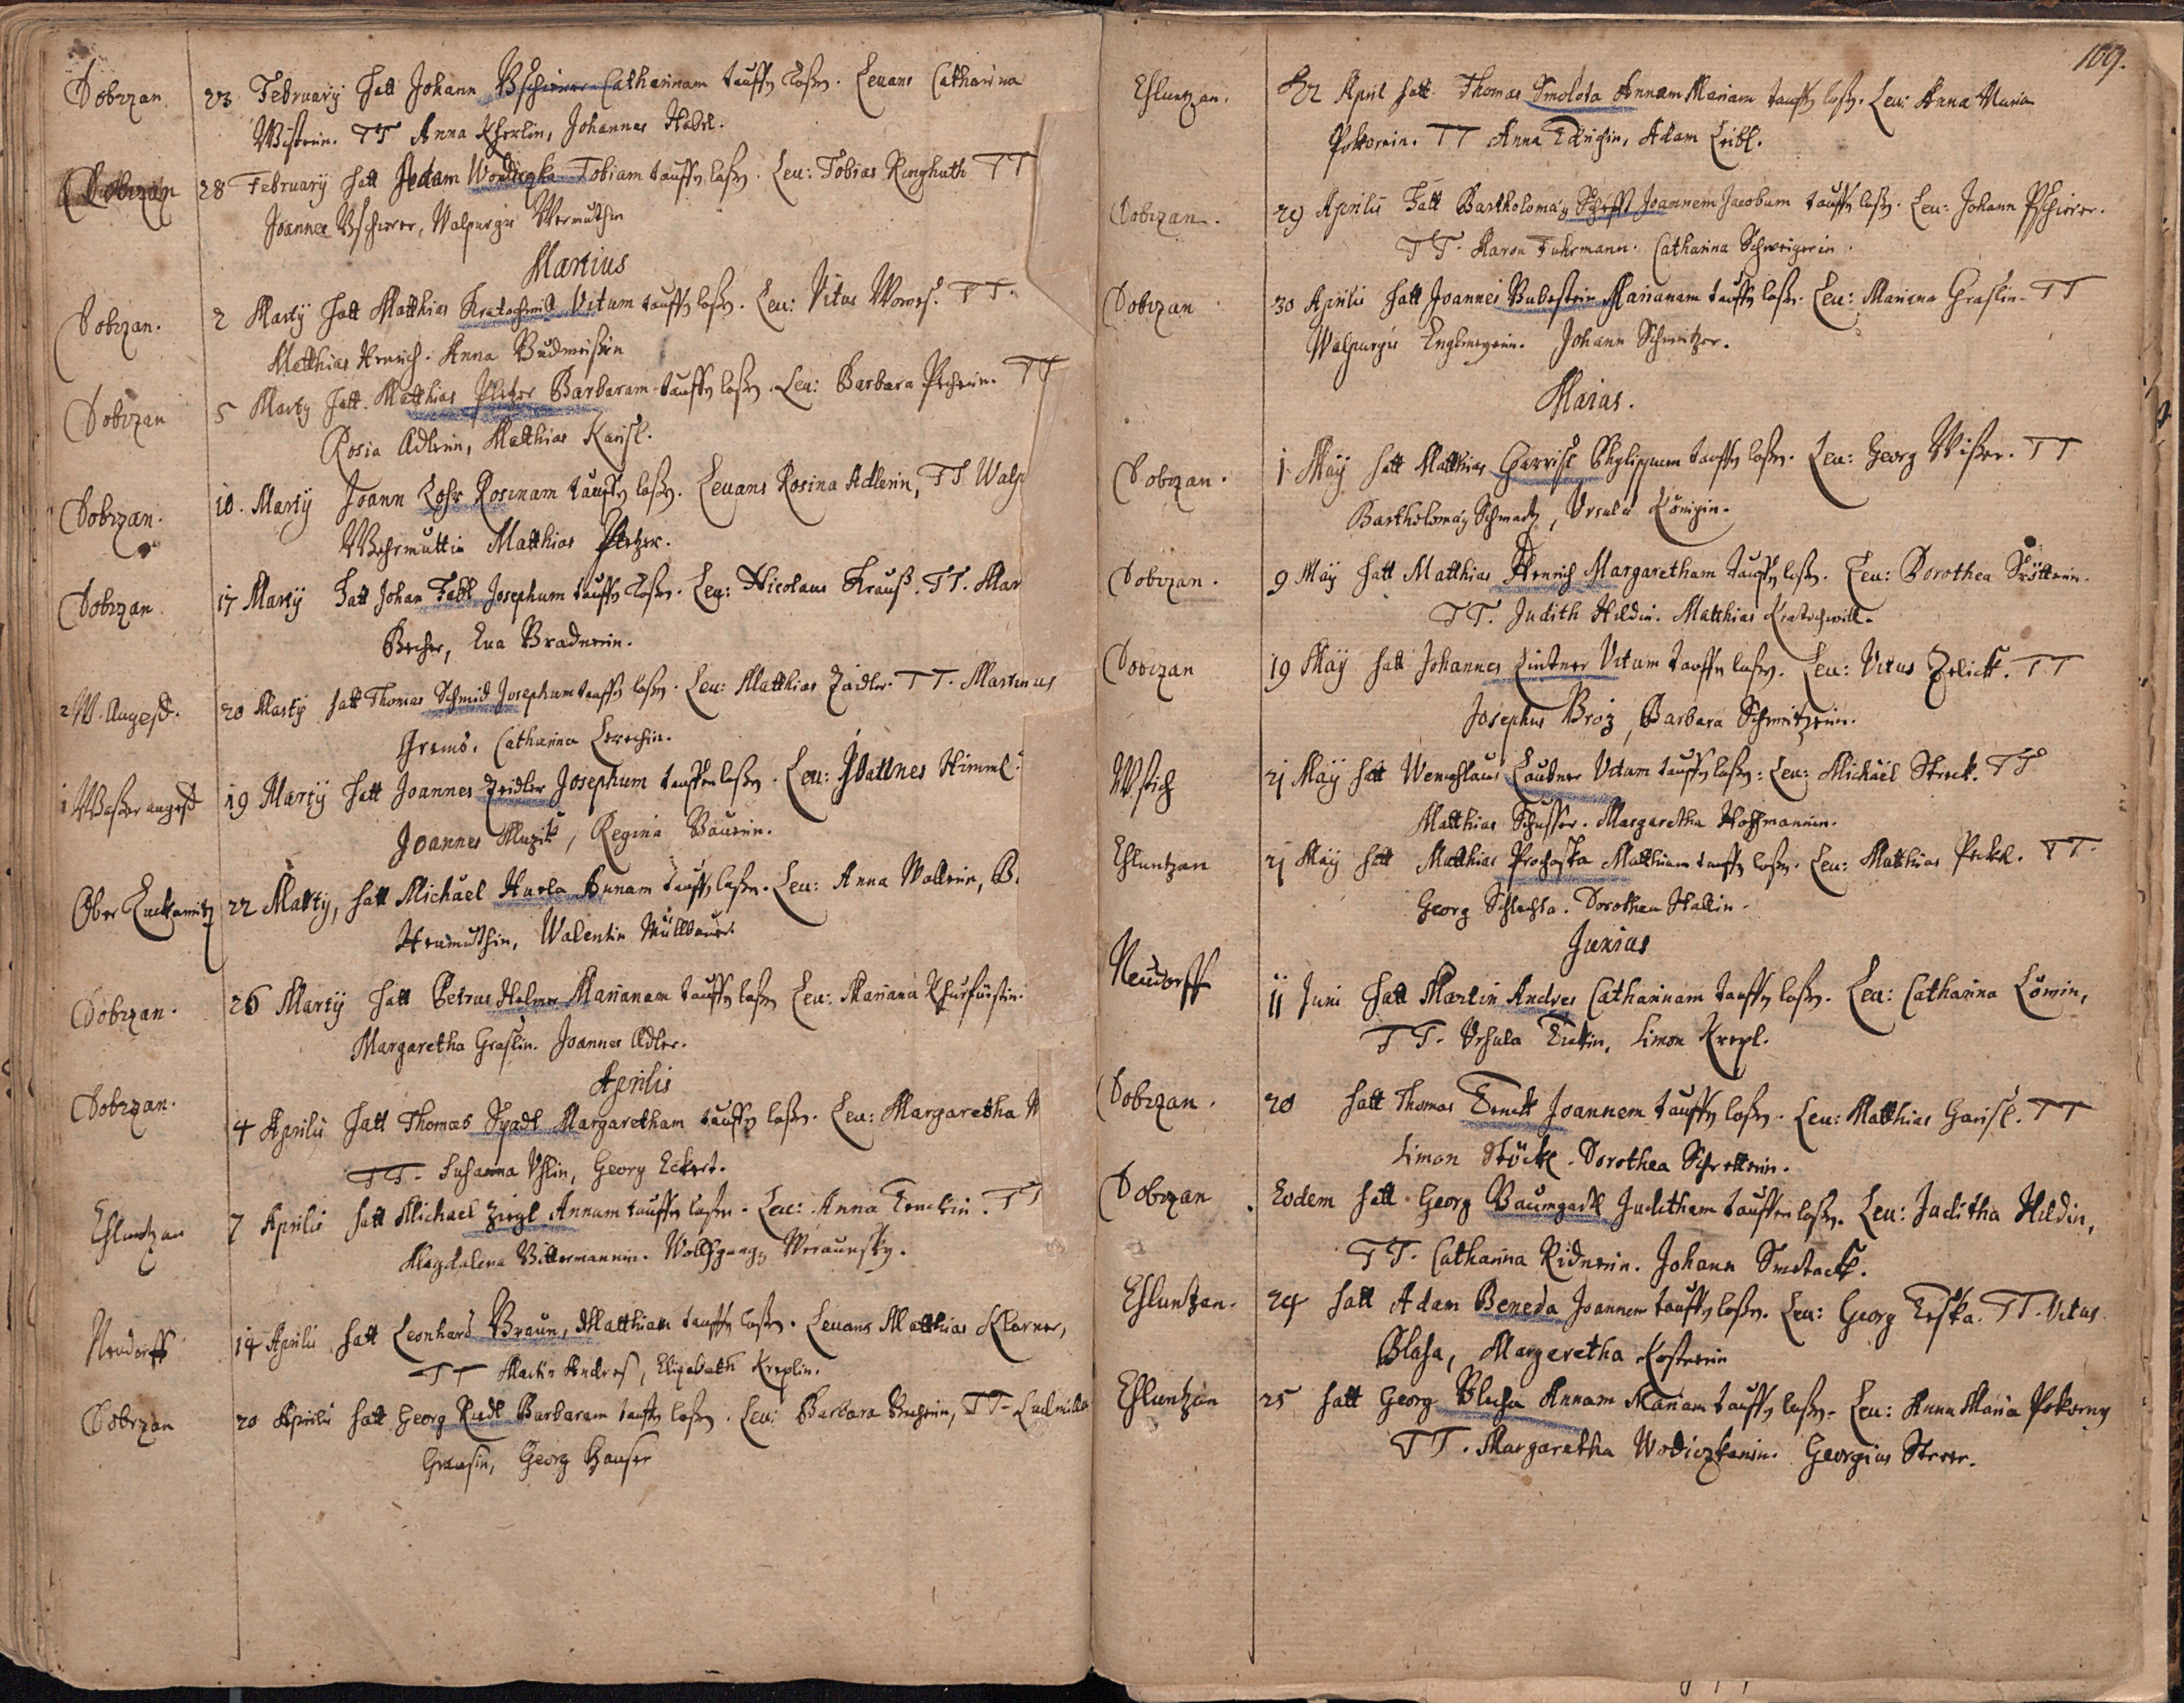 Dobrzan 23 February hatt Johann Pschierer Catharinam tauffen laßen. Leuans Catharina
TT Anna Johannes Habel.
Dobrzan 28 February hatt Adam Wodiczka Tobiam tauffen laßen. Leu: Tobias Ringhuth TT
Joannes Pschierer, Walpurgis Wermuthin
Martius
Dobrzan. 2 Marty hatt Matthias Kratochwil Vitum tauffen laßen. Leu: Vitus TT.
Matthias Henrich. Anna Budweißin
Dobrzan 5 Marty hatt. Matthias Barbaram tauffen laßen. Leu: Barbara TT
Rosia Adlerin, Matthias
Dobrzan. 10. Marty Joann Lohr Rosinam tauffen laßen. Leuans Rosina Adlerin, TT Walp
Wehrmuttin Matthias
Dobrzan. 17 Marty hatt Johan Fabl Josephum tauffen laßen. Leu: Nicolaus Krauß. TT. Mar
Becher, Eua Bradnerin.
2 W. Augesd. 20 Marty hatt Thomas Schmid Josephum tauffen laßen. Leu: Matthias Zaidler. TT. Martinus
Grems. Catharina Lerchin.
1 Waßer augesd 19 Marty hatt Joannes Zeidler Josephum tauffen laßen. Leu: Himml
Joannes Muzik, Regina Bauerin.
Ober Luckawitz 22 Marty, hatt Michäel Hurla Annam tauffen laßen. Leu: Anna Wallnerin, B.
Walentin Müllbauer.
Dobrzan. 26 Marty hatt Petrus Helmer Marianam tauffen laßen Leu: Mariana Churfürstin.
Margaretha Graslin. Joannes Adler.
Aprilis
Dobrzan. 4 Aprilis hatt Thomas Spadl Margaretham tauffen laßen. Leu: Margaretha
TT. Susanna Uhlin, Georg Eckert.
Chluntzan 7 Aprilis hatt Michael Ziegl Annam tauffen laßen. Leu: Anna TT
Magdalena Bittermannin. Wolffgang Weraunsky.
Neudorff 14 Aprilis hatt Leonhard Braun, Matthiam tauffen laßen. Leuans Matthias Klarner,
TT Martin Andres, Elizabeth Kreplin.
Dobrzan 20 Aprilis hatt Georg Riedl Barbaram tauffen laßen. Leu: Barbara TT. Ludmilla
Georg Hauser
109.
Chluntzan. 22 April hatt. Thomas Smolota Annam Mariam tauffen laßen. Leu: Anna Maria
Pokornin. TT Anna Adam Leibl.
Dobrzan. 29 Aprilis hatt Bartholomäy Joannem Jacobum tauffen laßen. Leu: Johann Pschierer.
TT. Aaron Fuhrmann. Catharina Schweigerin.
Dobrzan 30 Aprilis hatt Joannes Bubestein Marianam tauffen laßen. Leu: Mariana Graslin. TT
Walpurgis Englmeyerin. Johann Schmitzer.
Maias.
Dobrzan. 1 May hatt Matthias Phylippum tauffen laßen. Leu: Georg Wißer. TT
Bartholomäy Schmatz, Ursula Königin.
Dobrzan. 9 May hatt Matthias Henrich Margaretham tauffen laßen. Leu: Dorothea
TT. Judith Hildin. Matthias Kratochwill.
Dobrzan 19 May hatt Johannes Lintner Vitum tauffen laßen. Leu: Vitus Zelick. TT
Josephus Broz, Barbara Schmitzerin.
21 May hatt Wencßlaus Laubner Vitum tauffen laßen: Leu: Michäel Streck. TT
Matthias Schusser. Margaretha Hoffmannin.
Chluntzan 21 May hatt Matthias Prochaska Matthiam tauffen laßen. Leu: Matthias TT.
Georg Schlechta. Dorothea
Junius
Neudorff 11 Juni hatt Martin Andres Catharinam tauffen laßen. Leu: Catharina Löwin,
TT. Ursula Simon Krepl.
Dobrzan. 20 hatt Thomas Joannem tauffen laßen. Leu: Matthias TT
Simon Stöckl. Dorothea Schrotterin.
Dobrzan Eodem hatt Georg Baumgartl Juditham tauffen laßen. Leu: Juditha Hildin,
TT. Catharina Ridnerin. Johann Smetack.
Chluntzan. 24 hatt Adam Beneda Joannem tauffen laßen. Leu: Georg TT. Vitus
Blaha, Margeretha
Chluntzan 25 hatt Georg Blacha Annam Mariam tauffen laßen. Leu: Anna Maria Pokorny
TT. Margaretha Wodiczkanin. Georgius